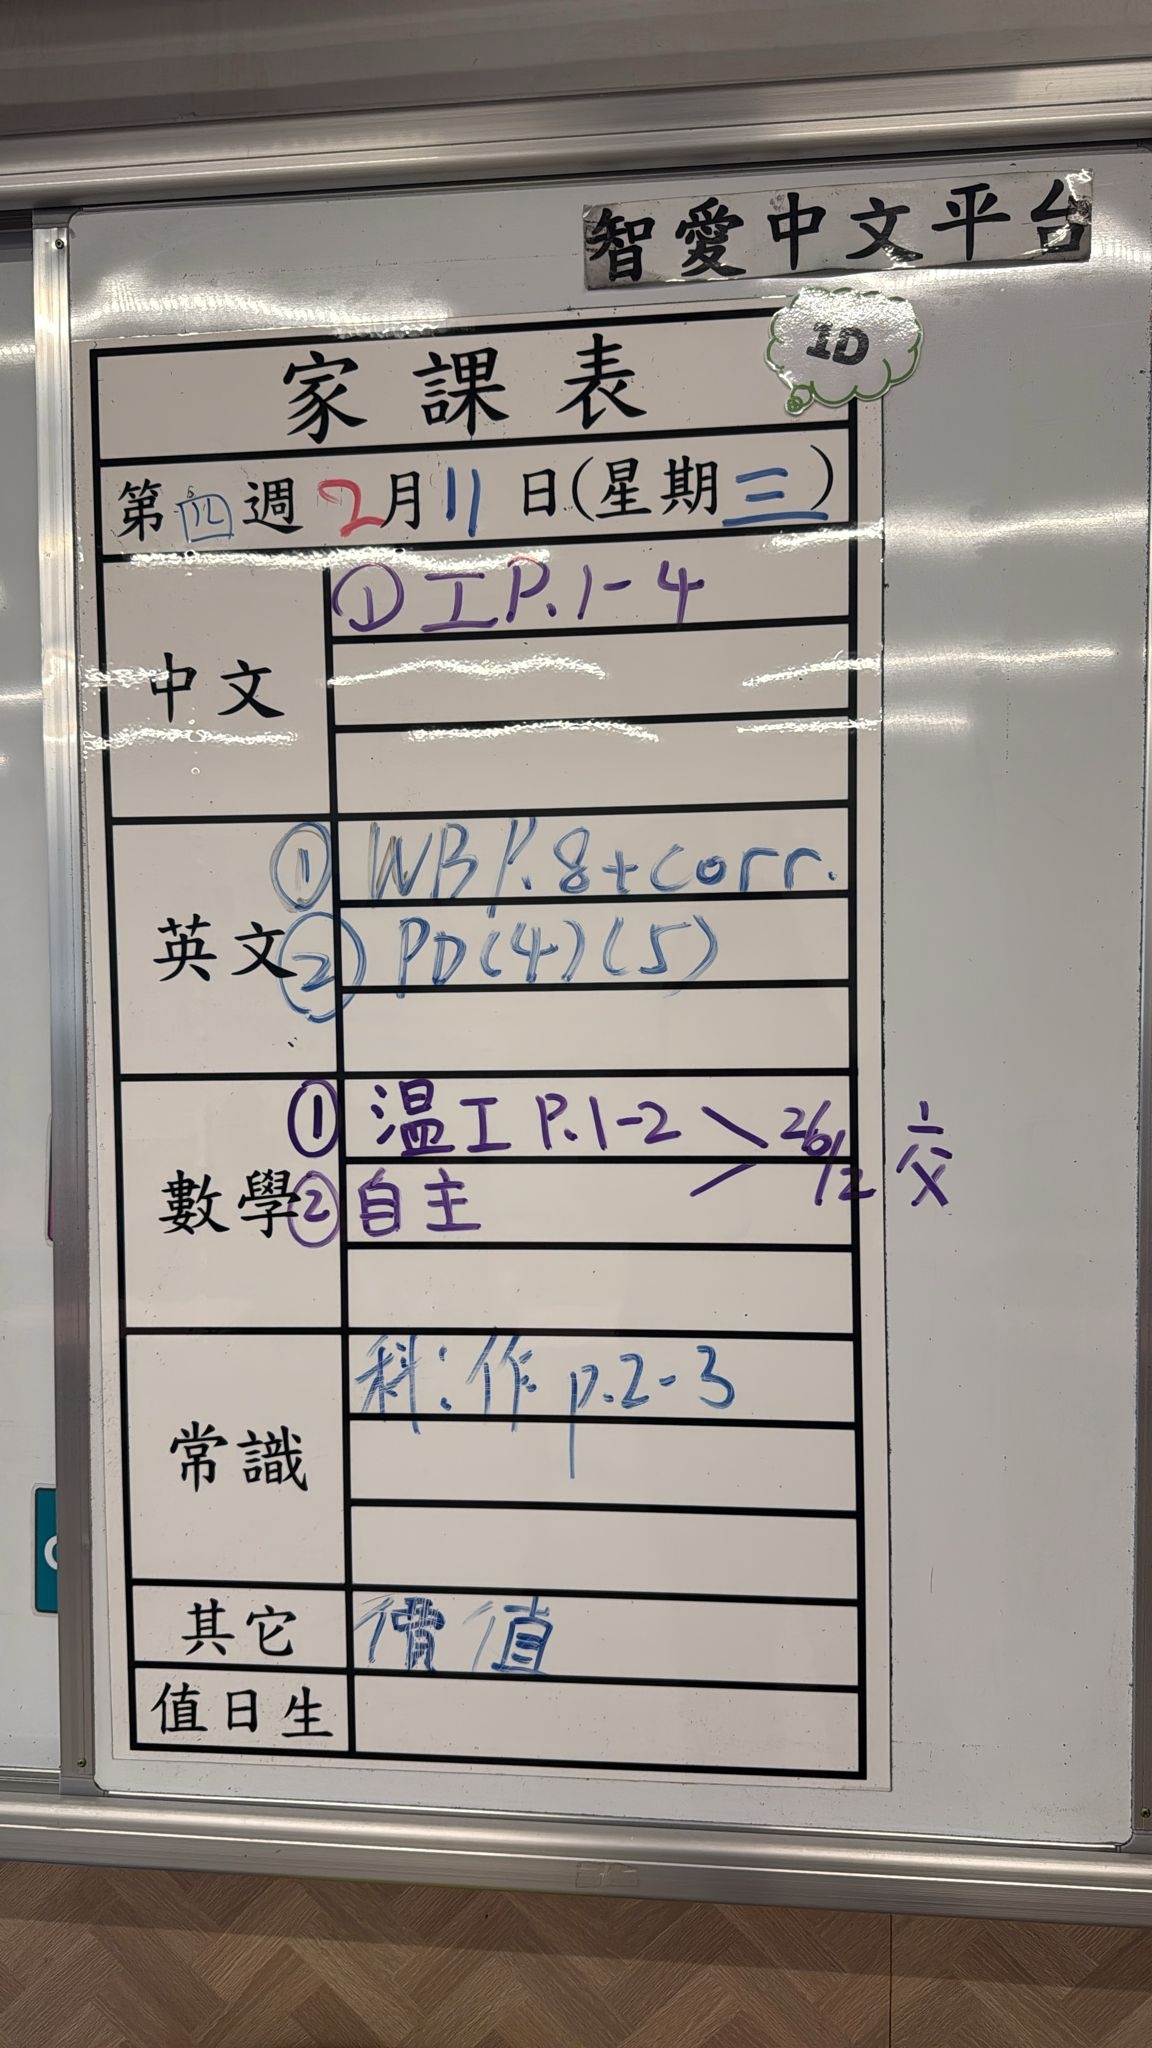 智愛中文平台
1D
家課表
第四週 2月11日(星期三)
中文
① 工 P.1-4
英文
① WB P.8 + corr.
② PD(4)(5)
數學
① 温工 P.1-2 26/2 交
② 自主
常識
科:作 p.2-3
其它
價值
值日生